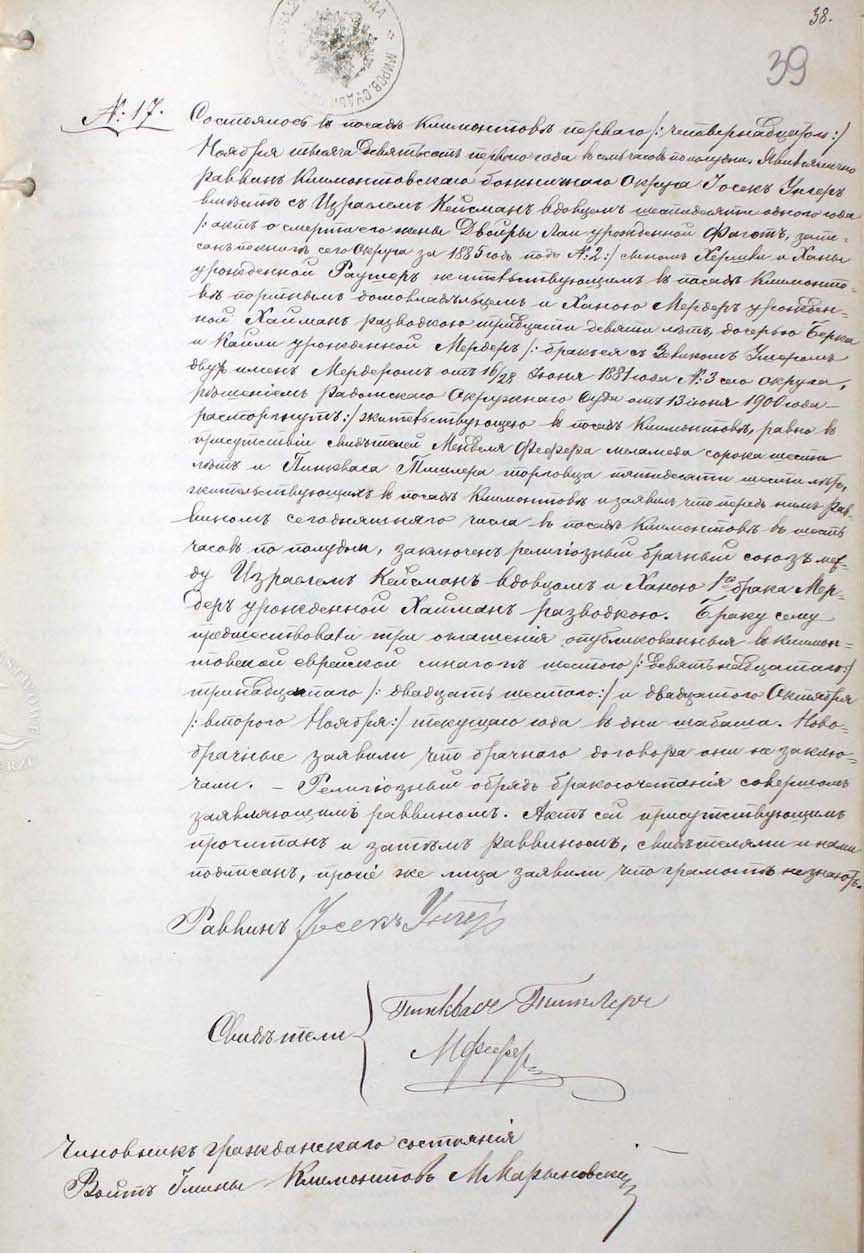 38.
39
МИРОВ. СУДЬИ
№: 17. Состоялось въ посадѣ Климонтовѣ перваго /: четырнадцатаго :/
Ноября тысяча девятьсотъ перваго года въ семь часовъ пополудни. Явился лично
раввинъ Климонтовскаго божничнаго округа Іосекъ Унгеръ
вмѣстѣ съ Израелемъ Кейсманъ вдовцемъ шестидесяти одного года
/: актъ о смерти его жены Двойры Лаи урожденной Фаготъ, запи-
санъ въ книгѣ сего округа за 1885 годъ подъ №: 2 :/ сыномъ Хершка и Ханы
урожденной Раушеръ жительствующимъ въ посадѣ Климонто-
вѣ портнымъ домовладѣльцемъ и Ханою Мердеръ урожден-
ной Хайманъ разводкою тридцати девяти лѣтъ, дочерью Берка
и Кайли урожденной Мердеръ /: бракъ ея съ Зевикомъ
двухъ именъ Мердеромъ отъ 16/28 Іюня 1881 года №: 3 сего округа,
рѣшеніемъ Радомскаго Окружнаго Суда отъ 13 іюня 1900 года
расторгнутъ :/ жительствующею въ посадѣ Климонтовѣ, равно въ
присутствіи свидѣтелей Менделя Фефера меламеда сорока шести
лѣтъ и Пинкваса торговца пятидесяти шести лѣтъ,
жительствующихъ въ посадѣ Климонтовѣ и заявилъ что передъ нимъ рав-
виномъ сегодняшняго числа въ посадѣ Климонтовѣ въ шесть
часовъ по полудни, заключенъ религіозный брачный союзъ меж-
ду Израелемъ Кейсманъ вдовцомъ и Ханою 1го брака Мер-
деръ урожденной Хайманъ разводкою. Браку сему
предшествовали три оглашенія опубликованныя въ Климон-
товской еврейской синагогѣ шестого /: девятнадцатаго :/
тринадцатаго /: двадцать шестаго :/ и двадцатаго Октября
/: втораго Ноября :/ текущаго года въ дни шабаша. Ново-
брачные заявили что брачнаго договора они не заклю-
чали. – Религіозный обрядъ бракосочетанія совершенъ
заявляющимъ раввиномъ. Актъ сей присутствующимъ
прочитанъ и затѣмъ раввиномъ, свидѣтелями и нами
подписанъ, прочіе же лица заявили что грамотѣ не знаютъ.
Раввинъ Іосекъ Унгеръ
Свидѣтели
Пинквасъ
М Феферъ
Чиновникъ гражданскаго состоянія
Войтъ Гмины Климонтовъ М Марыновскій